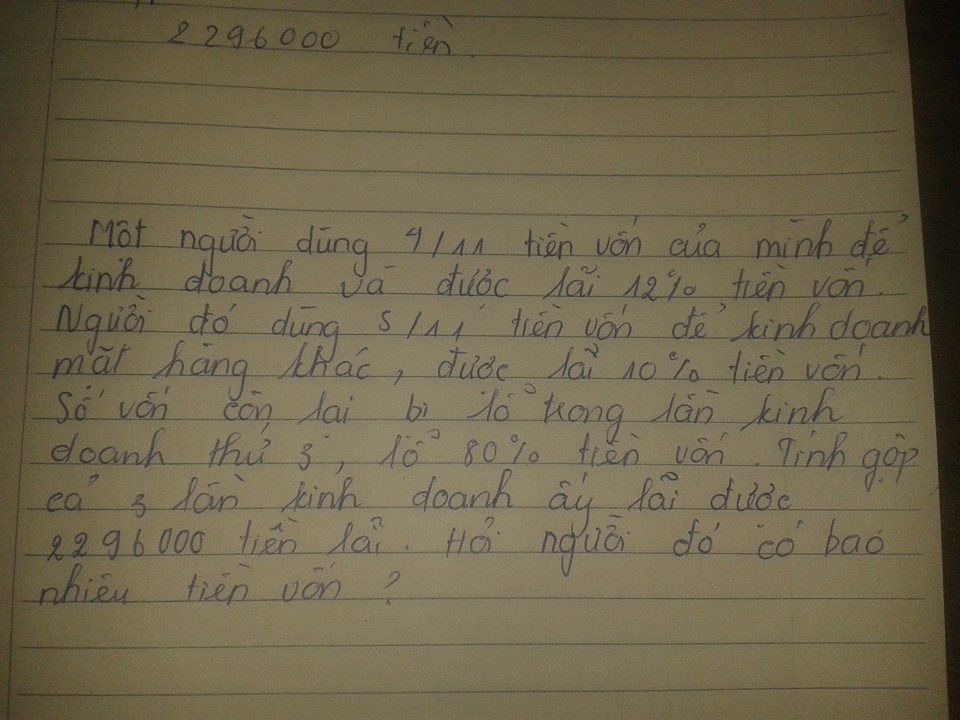 2296000 tiền.
Một người dùng 4/11 tiền vốn của mình để
kinh doanh và được lãi 12% tiền vốn.
Người đó dùng 5/11 tiền vốn để kinh doanh
mặt hàng khác, được lãi 10% tiền vốn.
Số vốn còn lại bị lỗ trong lần kinh
doanh thứ 3, lỗ 80% tiền vốn. Tính gộp
cả 3 lần kinh doanh ấy lãi được
2296000 tiền lãi. Hỏi người đó có bao
nhiêu tiền vốn?